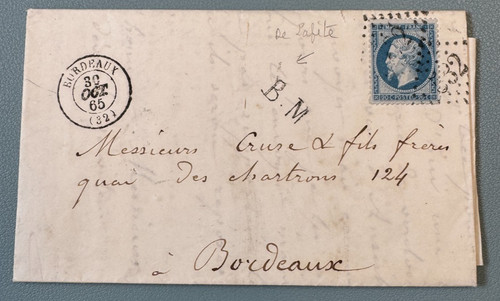 de Lafite
BORDEAUX
30
OCT.
65
(32)
B.M
20 C. POSTES 20 C.
532
Messieurs Cruse & fils frères
quai des chartrons 124
à Bordeaux